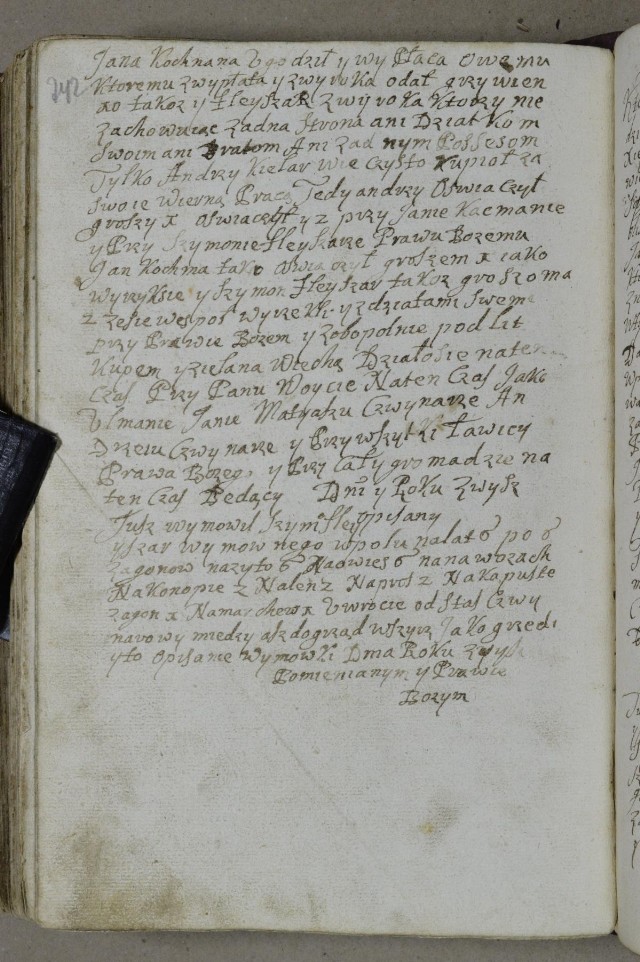 Jana Kochnana Ugodził y wy Płaca owemu
242
Ktoremu zwypłata y zwyroka odał grzywien
xo takoz y Fleyszar zwyroka Ktorzy nie
zachowuiąc zadna strona ani Dziatkom
swoim ani Bratom Ani zadnym Possesom
Tylko Andrzy Kielar wieczysto Kupioł za
swoie wierną Pracą Tedy andrzy Oswiaczył
groszy x oswiaczył y z przy Janie Kacmanie
y Przy Szymonie Fleyszarze Prawu Bozemu
Jan Kochma tako oswiaczył groszem x iako
wyrzyksie y Szymon Fleyszar takoz groszoma
z zesie wespoł wyrzekli y zdziatami swemi
przy Prawie Bozem y zobopolnie pod lit
Kupem y zielana Wiechą Działosie naten
Czas Przy Panu Woycie Naten Czas Jako
Ulmanie Janie Matyasku Czwynarze An
Drzeiu Czwynarze y Przy wszytki Ławicy
Prawa Bozego y Przy Cały gromadzie na
ten Czas Będący Dni y Roku zwysz
Tusz wymowił Szym Fley pisany
yszar wymownego wpolu nalat 6 po 6
zagonow nazyto 6 Naowies 6 nanawozach
Nakonopie z Nalen z Napros z Nakapuste
zagon x Namarchew x Uwrocie odstał Czwy
narowy miedzy asz dogrząd wszyrz Jako grzedi
yto opisanie wymowki Dma Roku zwysz
Pomienianym y Prawie
Bozym